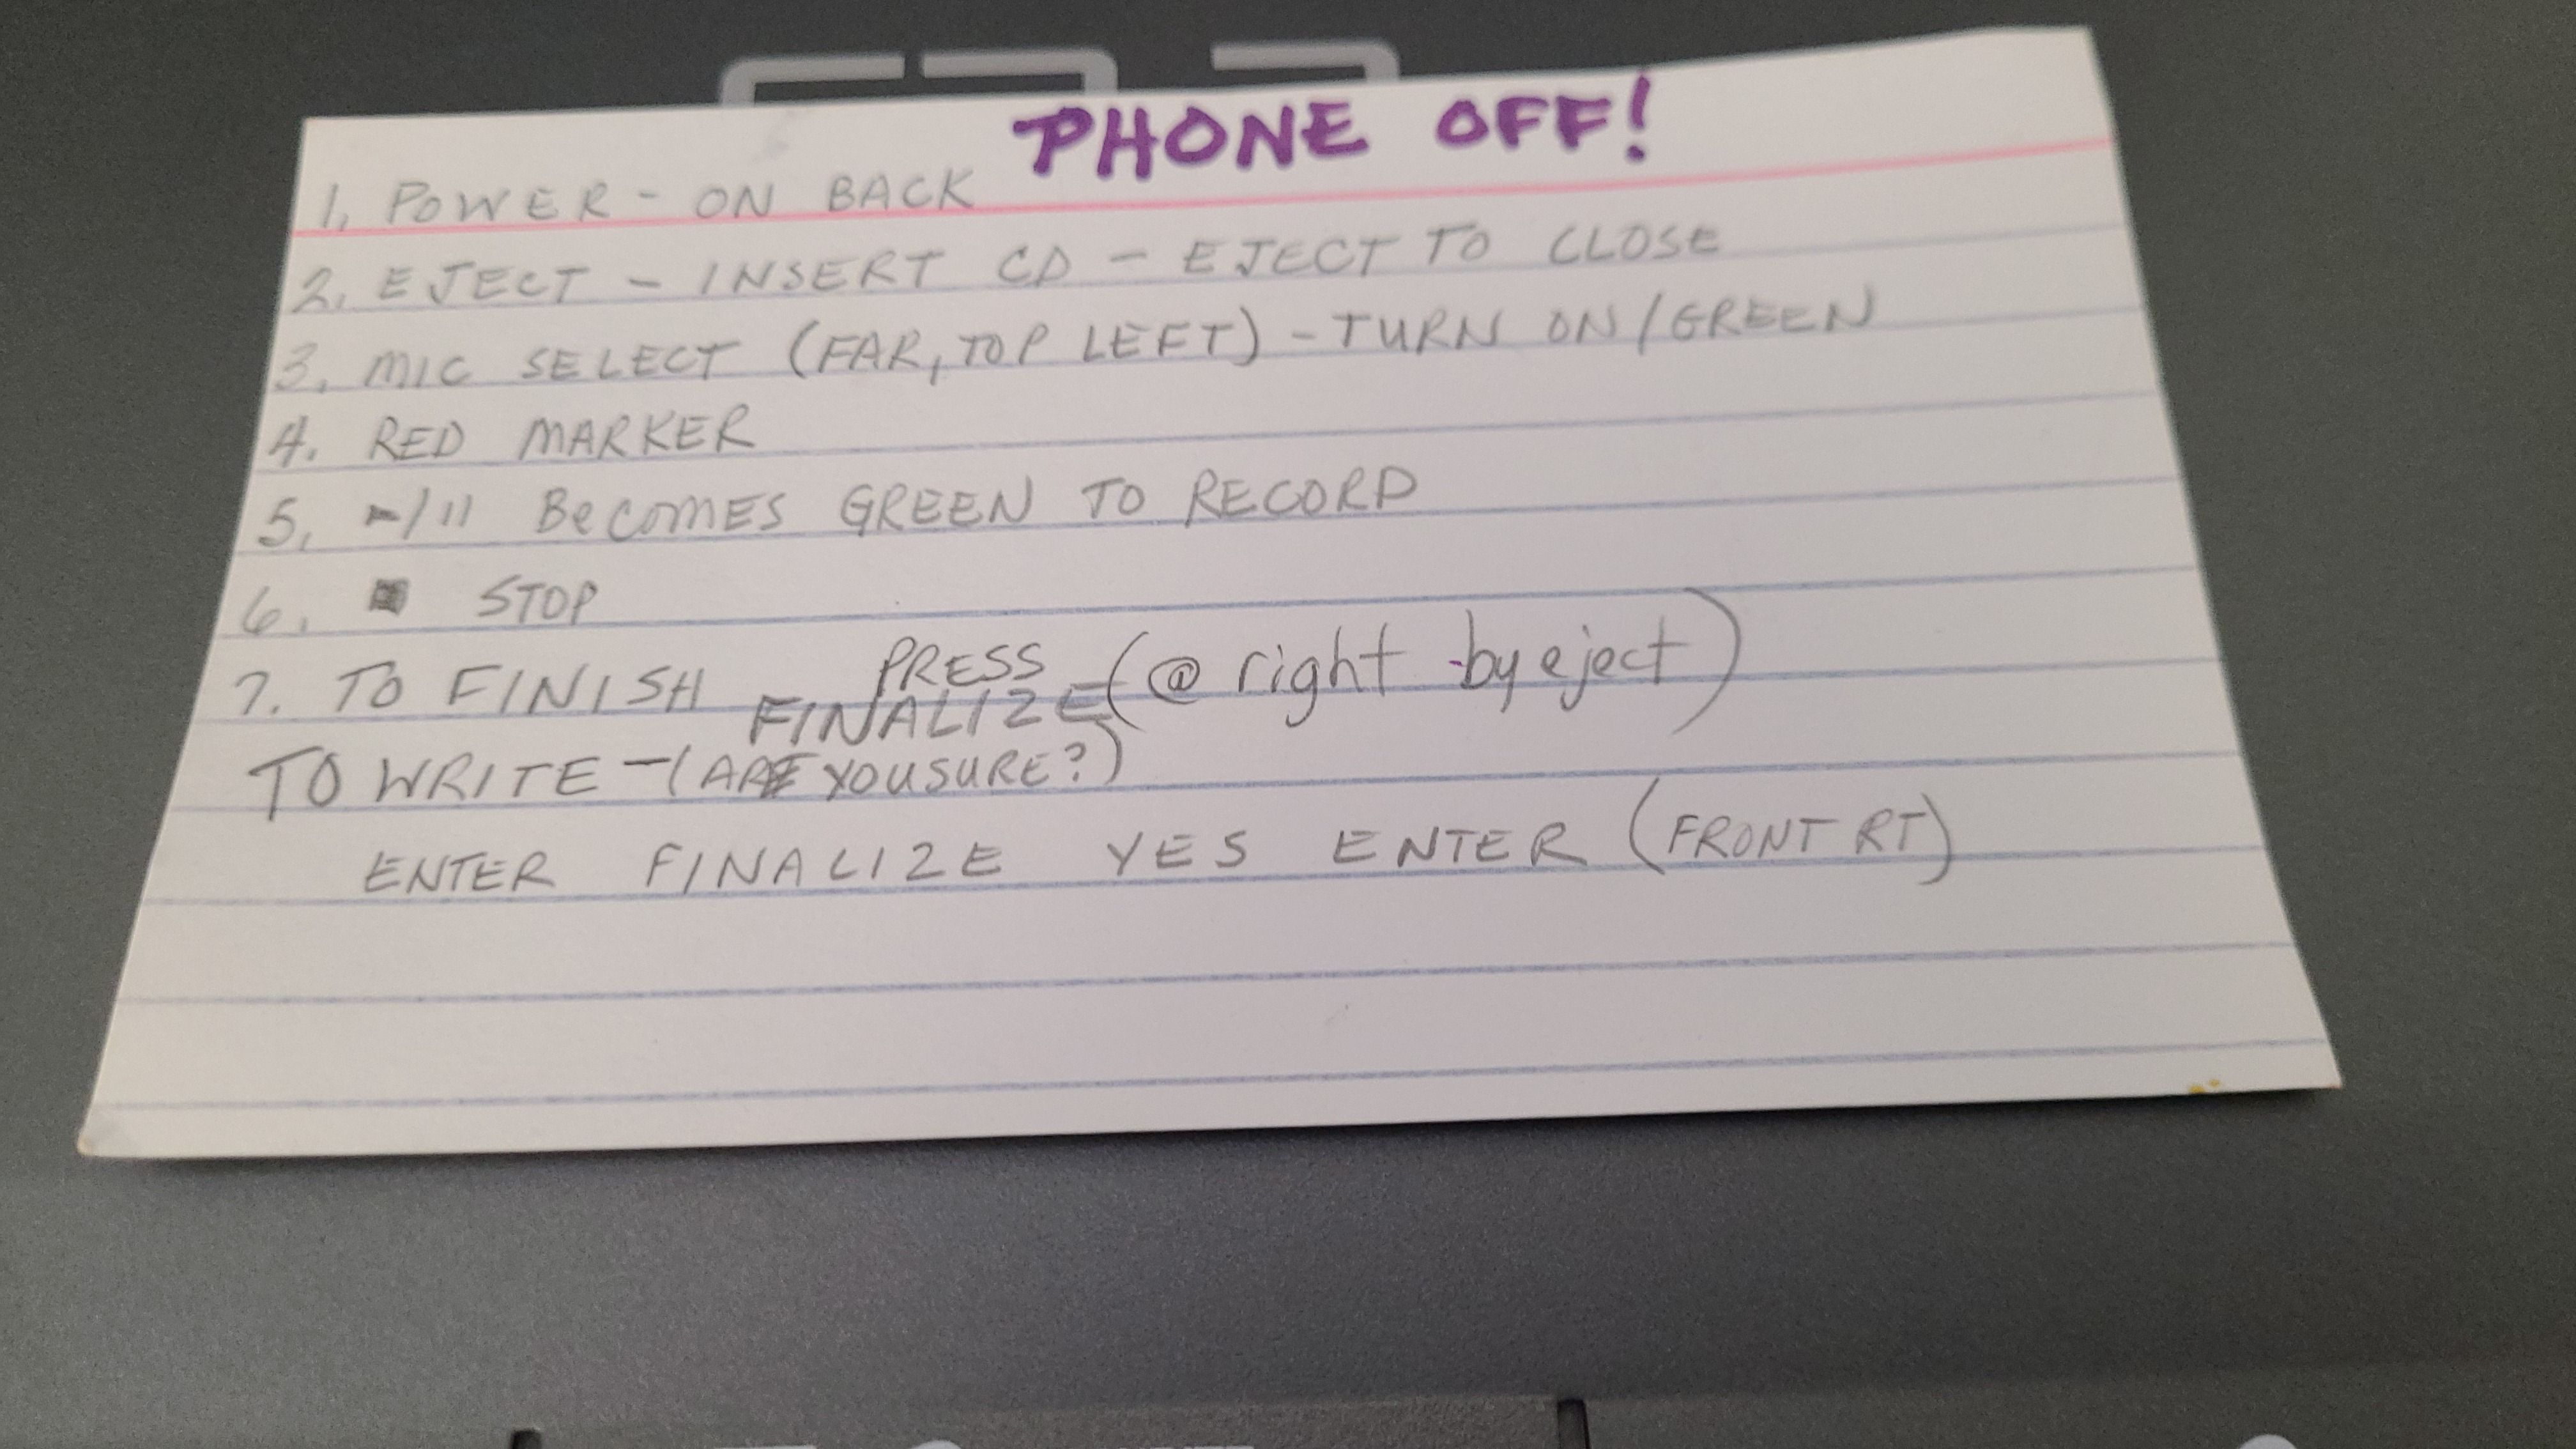 PHONE OFF!
1. POWER - ON BACK
2. EJECT - INSERT CD - EJECT TO CLOSE
3. MIC SELECT (FAR, TOP LEFT) - TURN ON/GREEN
4. RED MARKER
5. ►/II BeCOMES GREEN TO RECORD
6. ■ STOP
7. TO FINISH PRESS FINALIZE (@ right -by eject)
TO WRITE - (ARE YOU SURE?)
ENTER FINALIZE YES ENTER (FRONT RT)